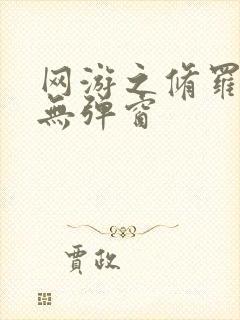 网游之脩羅
無弹窗
賈政